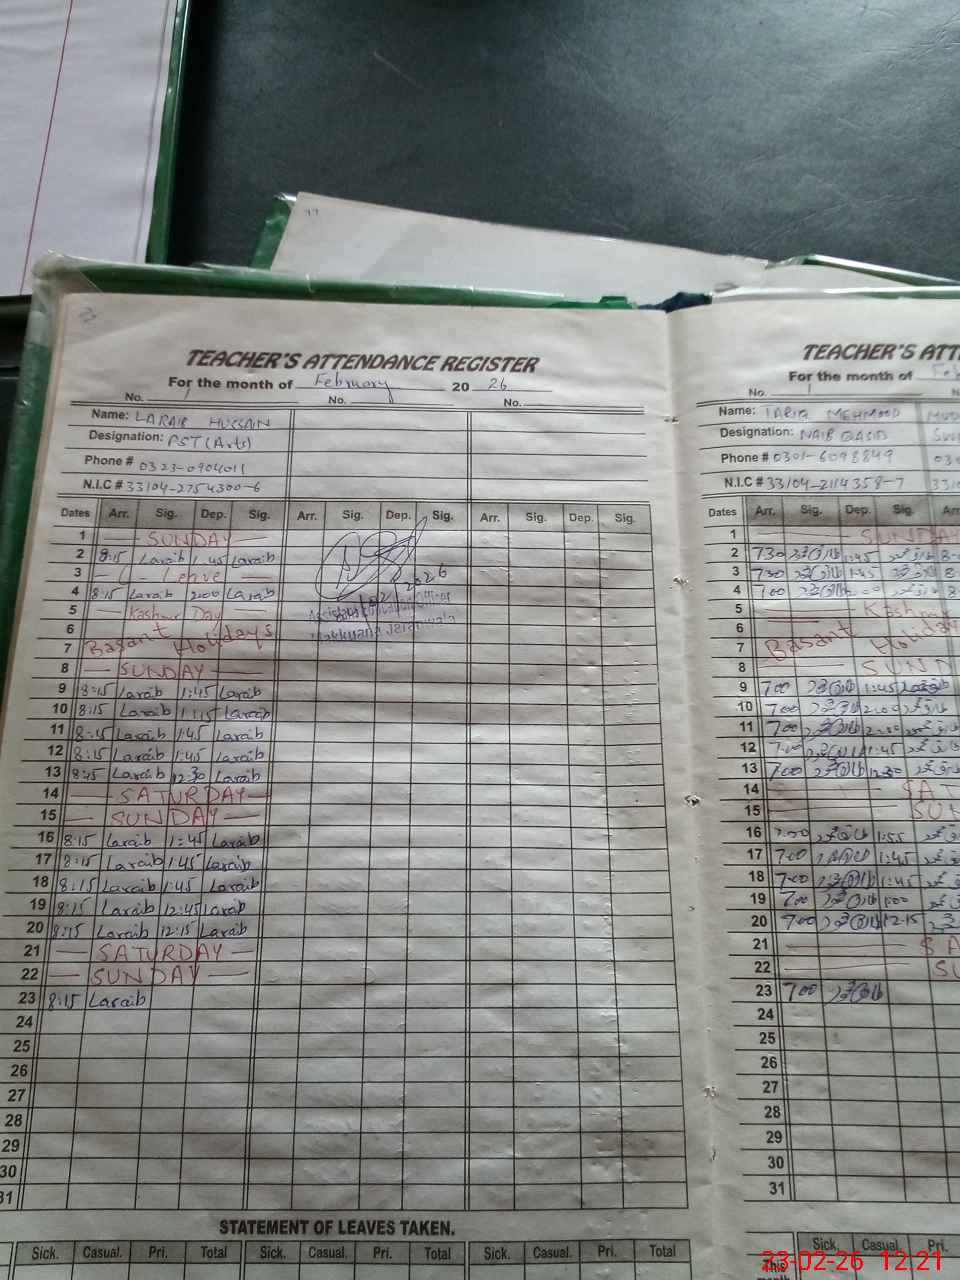 TEACHER'S ATTENDANCE REGISTER
For the month of February 2026
No. 1 No. No.
Name: LARAIB HUSSAIN
Designation: PST (Arts)
Phone # 0323-0904011
N.I.C # 33104-2754300-6
Dates Arr. Sig. Dep. Sig. Arr. Sig. Dep. Sig. Arr. Sig. Dep. Sig.
1 SUNDAY
2 8:15 Laraib 1:45 Laraib
3 C-Leave
4 8:15 Laraib 2:00 Laraib
5 Kashmir Day
6
7 Basant Holidays
8 SUNDAY
9 8:15 Laraib 1:45 Laraib
10 8:15 Laraib 1:15 Laraib
11 8:15 Laraib 1:45 Laraib
12 8:15 Laraib 1:45 Laraib
13 8:15 Laraib 12:30 Laraib
14 SATURDAY
15 SUNDAY
16 8:15 Laraib 1:45 Laraib
17 8:15 Laraib 1:45 Laraib
18 8:15 Laraib 1:45 Laraib
19 8:15 Laraib 12:45 Laraib
20 8:15 Laraib 12:15 Laraib
21 SATURDAY
22 SUNDAY
23 8:15 Laraib
24
25
26
27
28
29
30
31
STATEMENT OF LEAVES TAKEN.
Sick. Casual. Pri. Total Sick. Casual. Pri. Total Sick. Casual. Pri. Total
TEACHER'S ATT
For the month of Feb
No. 1
Name: TARIQ MEHMOOD
Designation: NAIB QASID
Phone # 0301-6098849
N.I.C # 33104-2114358-7
Dates Arr. Sig. Dep. Sig. Arr.
1 SUNDAY
2 7:30 1:45
3 7:30 1:45
4 7:00
5 Kashmir
6
7 Basant Holiday
8 SUND
9 7:00 1:45
10 7:00 2:00
11 7:00 2:00
12 7:00 1:45
13 7:00 12:30
14 SAT
15 SUN
16 7:00 1:55
17 7:00 1:45
18 7:00 1:45
19 7:00 1:00
20 7:00 12:15
21 SA
22 SU
23 7:00
24
25
26
27
28
29
30
31
Sick. Casual. Pri.
This
23-02-26 12.21